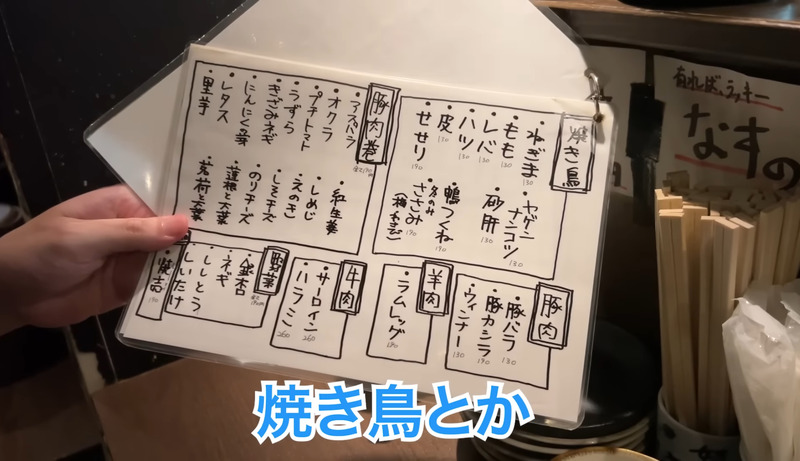 焼き鳥
・ねぎま 130
・もも 130
・レバ 130
・ハツ 130
・皮 190
・せせり 190
・ヤゲンナンコツ 130
・砂肝 130
・鴨つくね 190
・冬のみささみ 190
豚肉巻
・アスパラ
・オクラ
・プチトマト
・うずら
・きざみネギ
・にんにくの芽
・レタス
・里芋
・紅生姜
・しめじ
・えのき
・しそチーズ
・のりチーズ
・蓮根と大葉
・茗荷と大葉
豚肉
・豚バラ 130
・豚カシラ 190
・ウィンナー 130
羊肉
・ラムレッグ
牛肉
・サーロイン 260
・ハラミ 260
野菜
・銀杏
・ネギ
・ししとう
・しいたけ
有ればラッキー
なすの
焼き鳥とか